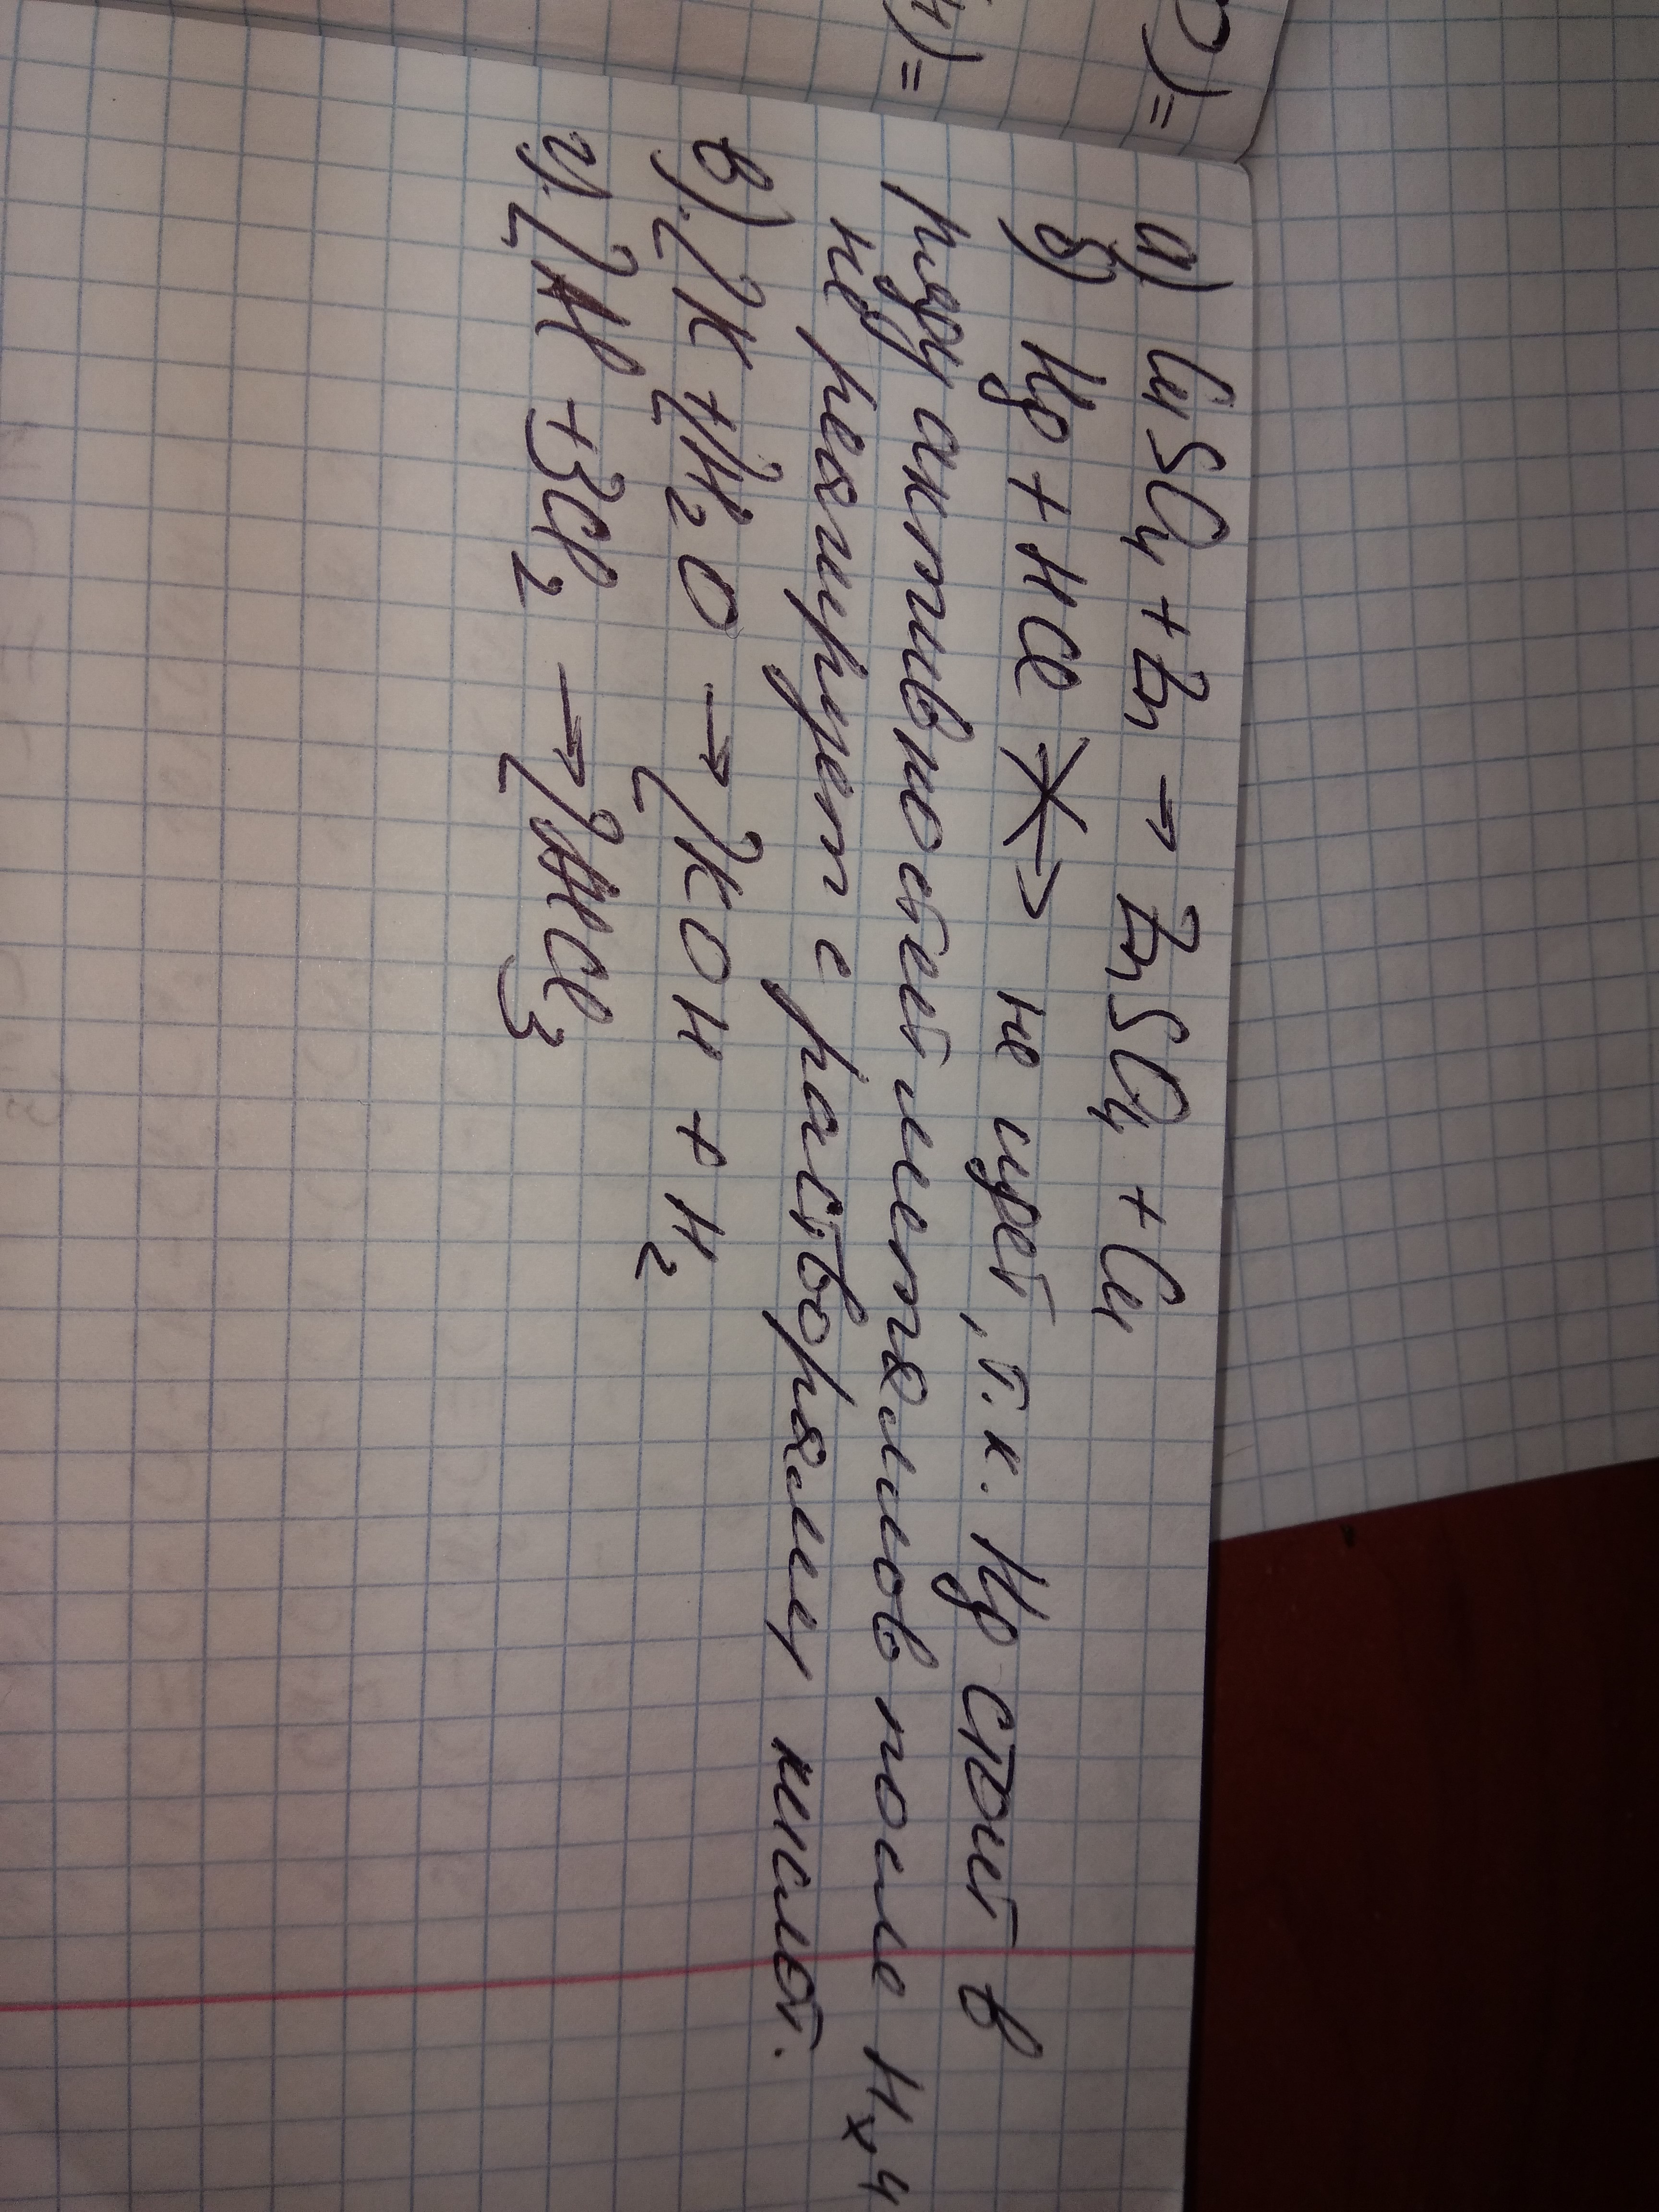 0)=
4)=
а) CuSO4 + Zn → ZnSO4 + Cu
б) Hg + HCl → не идет, т.к. Hg стоит в
ряду активностей металлов после H2 и
не реагирует с растворами кислот.
в) 2K + 2H2O → 2KOH + H2
г) 2Al + 3Cl2 → 2AlCl3